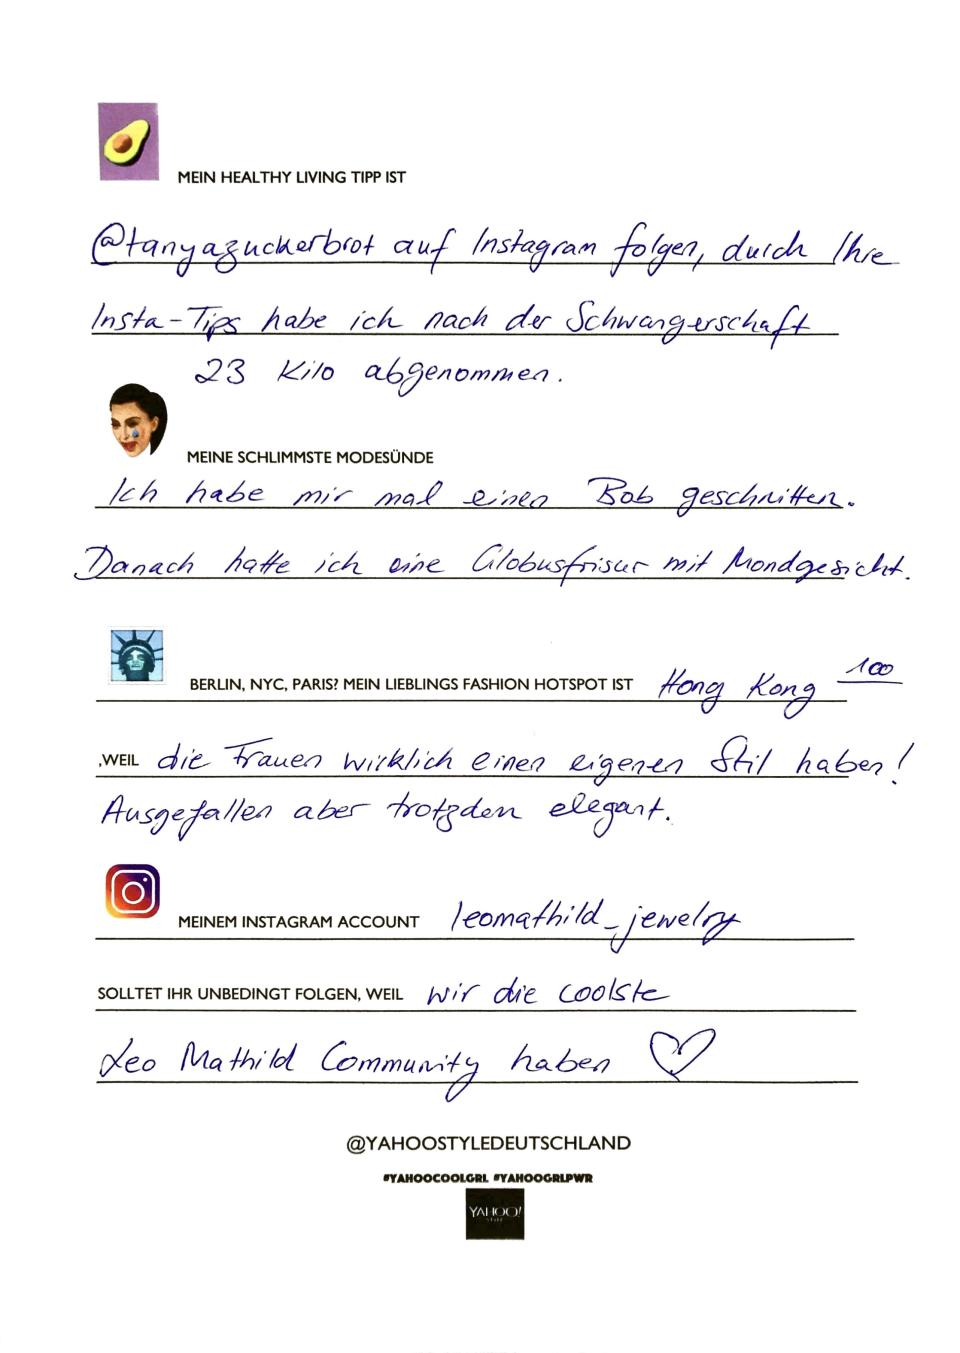 MEIN HEALTHY LIVING TIPP IST
@tanyazuckerbrot auf Instagram folgen, durch Ihre
Insta-Tips habe ich nach der Schwangerschaft
23 Kilo abgenommen.
MEINE SCHLIMMSTE MODESÜNDE
Ich habe mir mal einen Bob geschnitten.
Danach hatte ich eine Globusfrisur mit Mondgesicht.
BERLIN, NYC, PARIS? MEIN LIEBLINGS FASHION HOTSPOT IST Hong Kong 100
,WEIL die Frauen wirklich einen eigenen Stil haben!
Ausgefallen aber trotzdem elegant.
MEINEM INSTAGRAM ACCOUNT leomathild_jewelry
SOLLTET IHR UNBEDINGT FOLGEN, WEIL wir die coolste
Leo Mathild Community haben
@YAHOOSTYLEDEUTSCHLAND
#YAHOOCOOLGRL #YAHOOGRLPWR
YAHOO!
STYLE